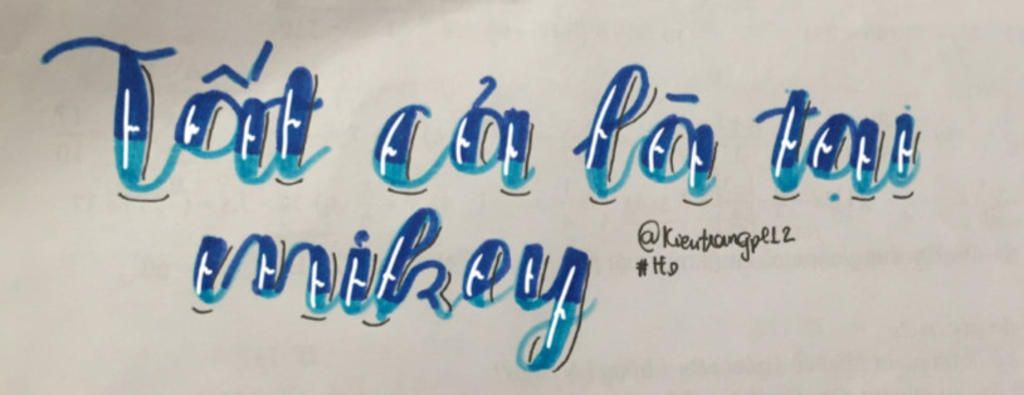 Tất cả là tại
mikey
@Kieutrangpl12
#H.D